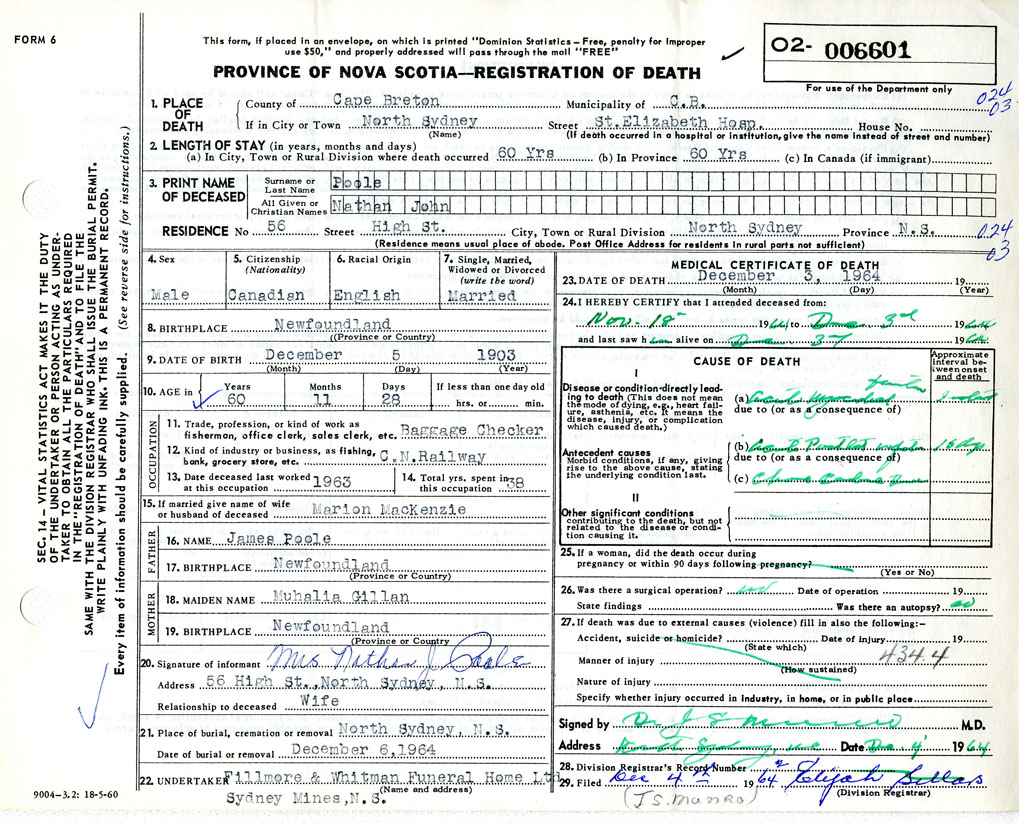 FORM 6
This form, if placed in an envelope, on which is printed "Dominion Statistics – Free, penalty for Improper
use $50," and properly addressed will pass through the mail "FREE"
02- 006601
For use of the Department only
PROVINCE OF NOVA SCOTIA—REGISTRATION OF DEATH
024
03
1. PLACE OF DEATH
County of Cape Breton Municipality of C.B.
If in City or Town North Sydney Street St.Elizabeth Hosp. House No.
(Name) (If death occurred in a hospital or institution, give the name instead of street and number)
2. LENGTH OF STAY (in years, months and days)
(a) In City, Town or Rural Division where death occurred 60 Yrs (b) In Province 60 Yrs (c) In Canada (if immigrant)
3. PRINT NAME OF DECEASED
Surname or Last Name Poole
All Given or Christian Names Nathan John
RESIDENCE No 56 Street High St. City, Town or Rural Division North Sydney Province N.S.
(Residence means usual place of abode. Post Office Address for residents in rural parts not sufficient)
024
03
SEC. 14 – VITAL STATISTICS ACT MAKES IT THE DUTY
OF THE UNDERTAKER OR PERSON ACTING AS UNDER-
TAKER TO OBTAIN ALL THE PARTICULARS REQUIRED
IN THE "REGISTRATION OF DEATH" AND TO FILE THE
SAME WITH THE DIVISION REGISTRAR WHO SHALL ISSUE THE BURIAL PERMIT.
WRITE PLAINLY WITH UNFADING INK. THIS IS A PERMANENT RECORD.
Every item of information should be carefully supplied. (See reverse side for instructions.)
4. Sex
Male
5. Citizenship
(Nationality)
Canadian
6. Racial Origin
English
7. Single, Married, Widowed or Divorced
(write the word)
Married
8. BIRTHPLACE Newfoundland
((Province or Country)
9. DATE OF BIRTH December 5 1903
(Month) (Day) (Year)
10. AGE in
Years 60
Months 11
Days 28
If less than one day old
hrs. or min.
OCCUPATION
11. Trade, profession, or kind of work as
fisherman, office clerk, sales clerk, etc. Baggage Checker
12. Kind of industry or business, as fishing,
bank, grocery store, etc. C.N.Railway
13. Date deceased last worked
at this occupation 1963
14. Total yrs. spent in
this occupation 38
15. If married give name of wife
or husband of deceased Marion MacKenzie
FATHER
16. NAME James Poole
17. BIRTHPLACE Newfoundland
(Province or Country)
MOTHER
18. MAIDEN NAME Muhalia Gillan
19. BIRTHPLACE Newfoundland
(Province or Country
20. Signature of informant Mrs Nathan J. Poole
Address 56 High St.,North Sydney, N.S.
Relationship to deceased Wife
21. Place of burial, cremation or removal North Sydney, N.S.
Date of burial or removal December 6,1964
22. UNDERTAKER Fillmore & Whitman Funeral Home Ltd
(Name and address)
Sydney Mines,N.S.
9004–3.2: 18-5-60
MEDICAL CERTIFICATE OF DEATH
23. DATE OF DEATH December 3, 1964 19
(Month) (Day) (Year)
24. I HEREBY CERTIFY that I attended deceased from:
Nov. 18 1964 to Dec 3rd 1964
and last saw h im alive on Dec 3 1964
CAUSE OF DEATH
Approximate interval between onset and death
I
Disease or condition directly lead-
ing to death (This does not mean
the mode of dying, e.g., heart fail-
ure, asthenia, etc. It means the
disease, injury, or complication
which caused death.)
(a) Acute Myocardial
due to (or as a consequence of)
Antecedent causes
Morbid conditions, if any, giving
rise to the above cause, stating
the underlying condition last.
(b) Acute
due to (or as a consequence of)
(c)
II
Other significant conditions
contributing to the death, but not
related to the disease or condi-
tion causing it.
25. If a woman, did the death occur during
pregnancy or within 90 days following pregnancy?
(Yes or No)
26. Was there a surgical operation? no Date of operation 19
State findings Was there an autopsy? no
27. If death was due to external causes (violence) fill in also the following:–
Accident, suicide or homicide? Date of injury 19
(State which)
Manner of injury 434.4
(How sustained)
Nature of injury
Specify whether injury occurred in industry, in home, or in public place
Signed by Dr J S Munro M.D.
Address North Sydney, N.S. Date Dec 4 1964
28. Division Registrar's Record Number
29. Filed Dec 4 1964 Elijah Sellars
(Division Registrar)
(J S. Munro)